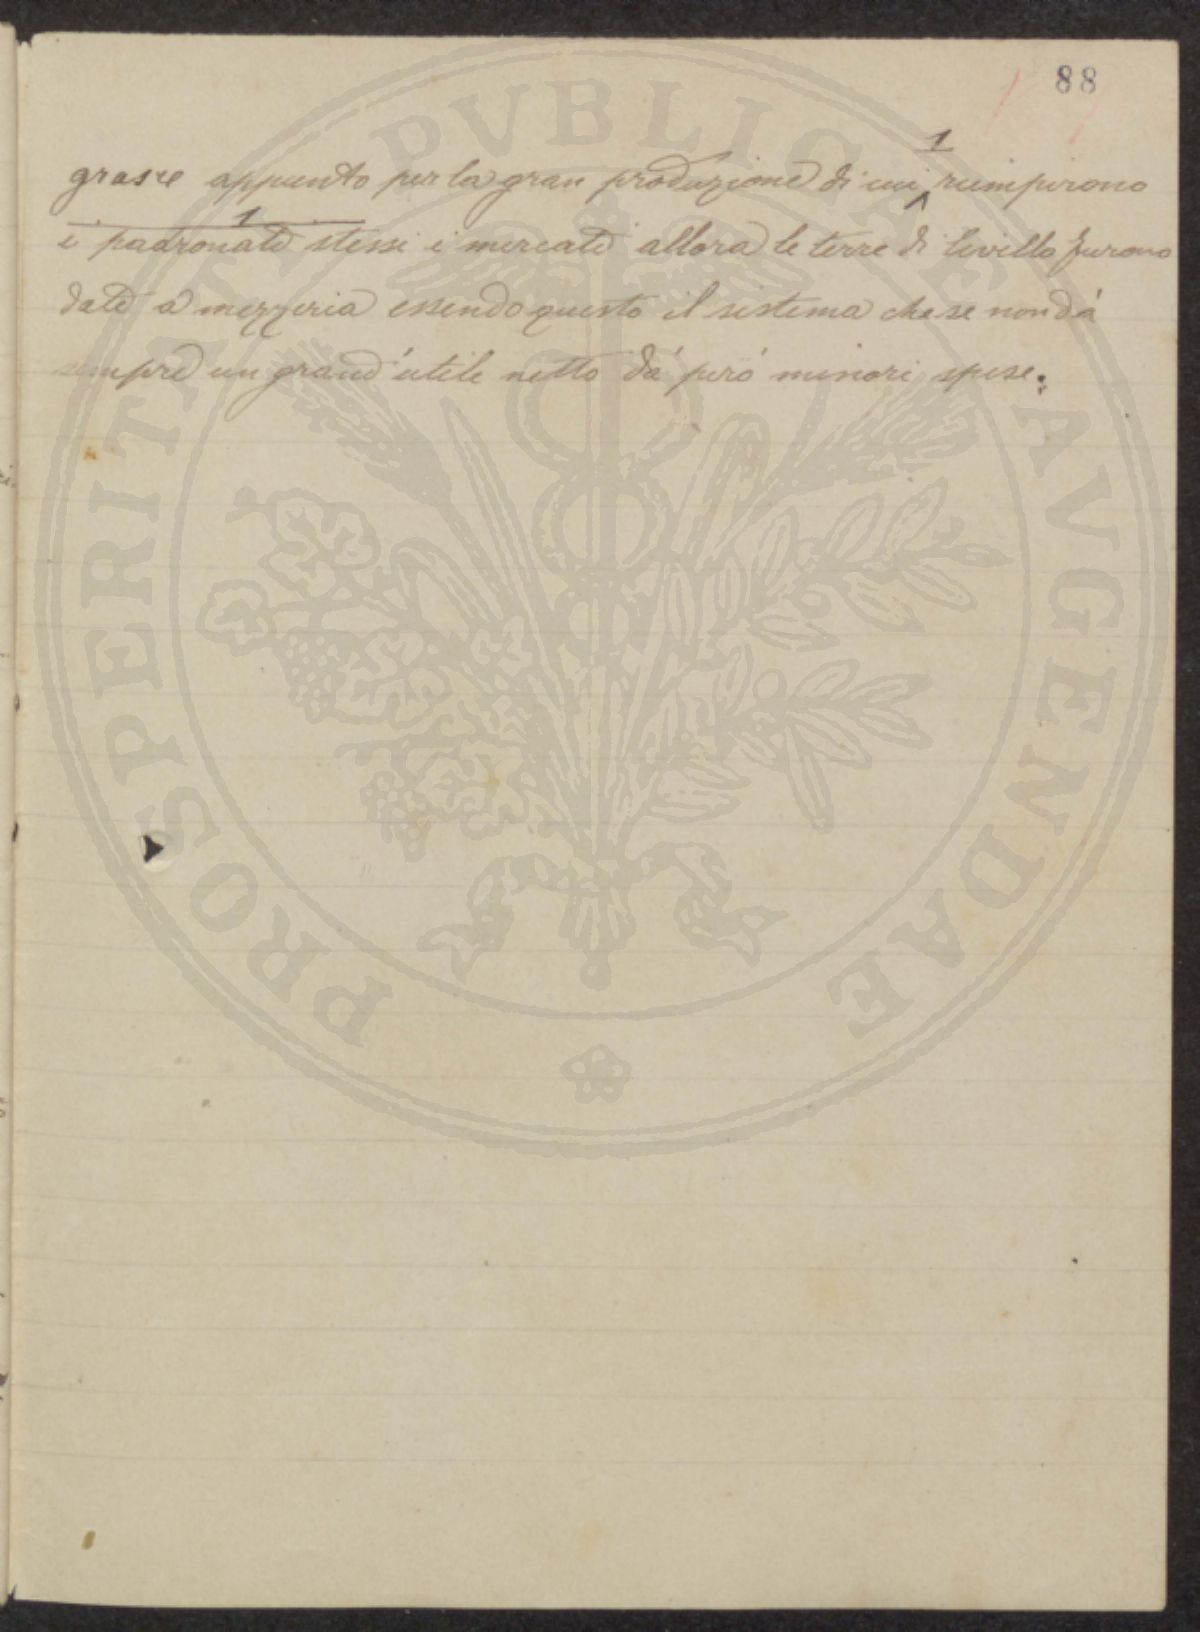 88
1
grasce appunto per la gran produzione di cui ^ riempirono
1
i padronati stessi i mercati allora le terre di livello furono
date a mezzeria essendo questo il sistema che se non dà
sempre un grand'utile netto dà però minori spese.
PROSPERITATI PVBLICAE AVGENDAE